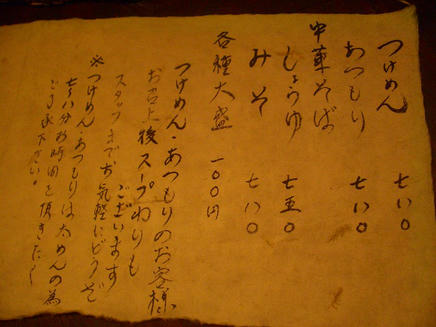 つけめん 七八〇
あつもり 七八〇
中華そば
しょうゆ 七五〇
みそ 七八〇
各種大盛 一〇〇円
つけめん・あつもりのお客様
お召上後スープわりも
ございます
スタッフまでお気軽にどうぞ
※つけめん・あつもりは太めんの為
七八分お時間を頂きたく
ご了承下さい。